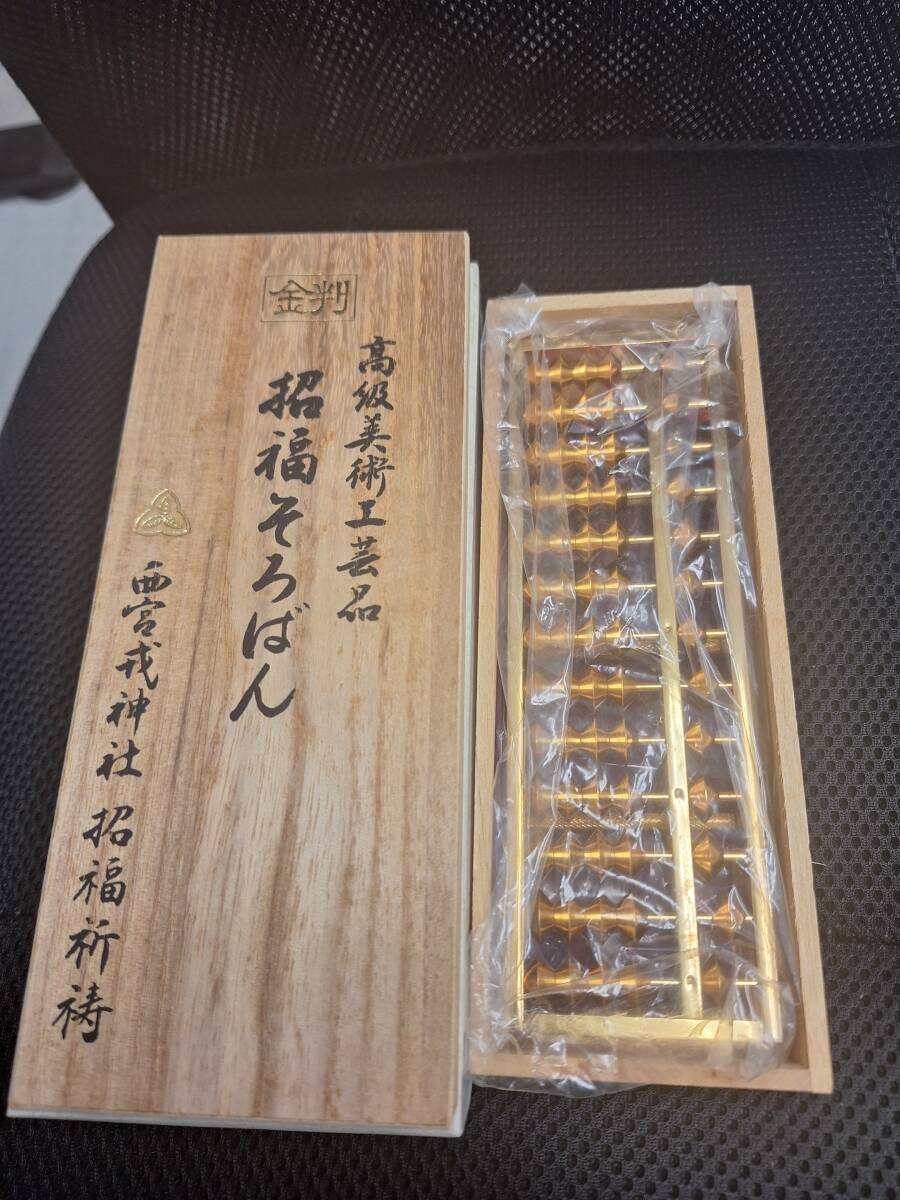 金判
高級美術工芸品
招福そろばん
西宮戎神社 招福祈祷